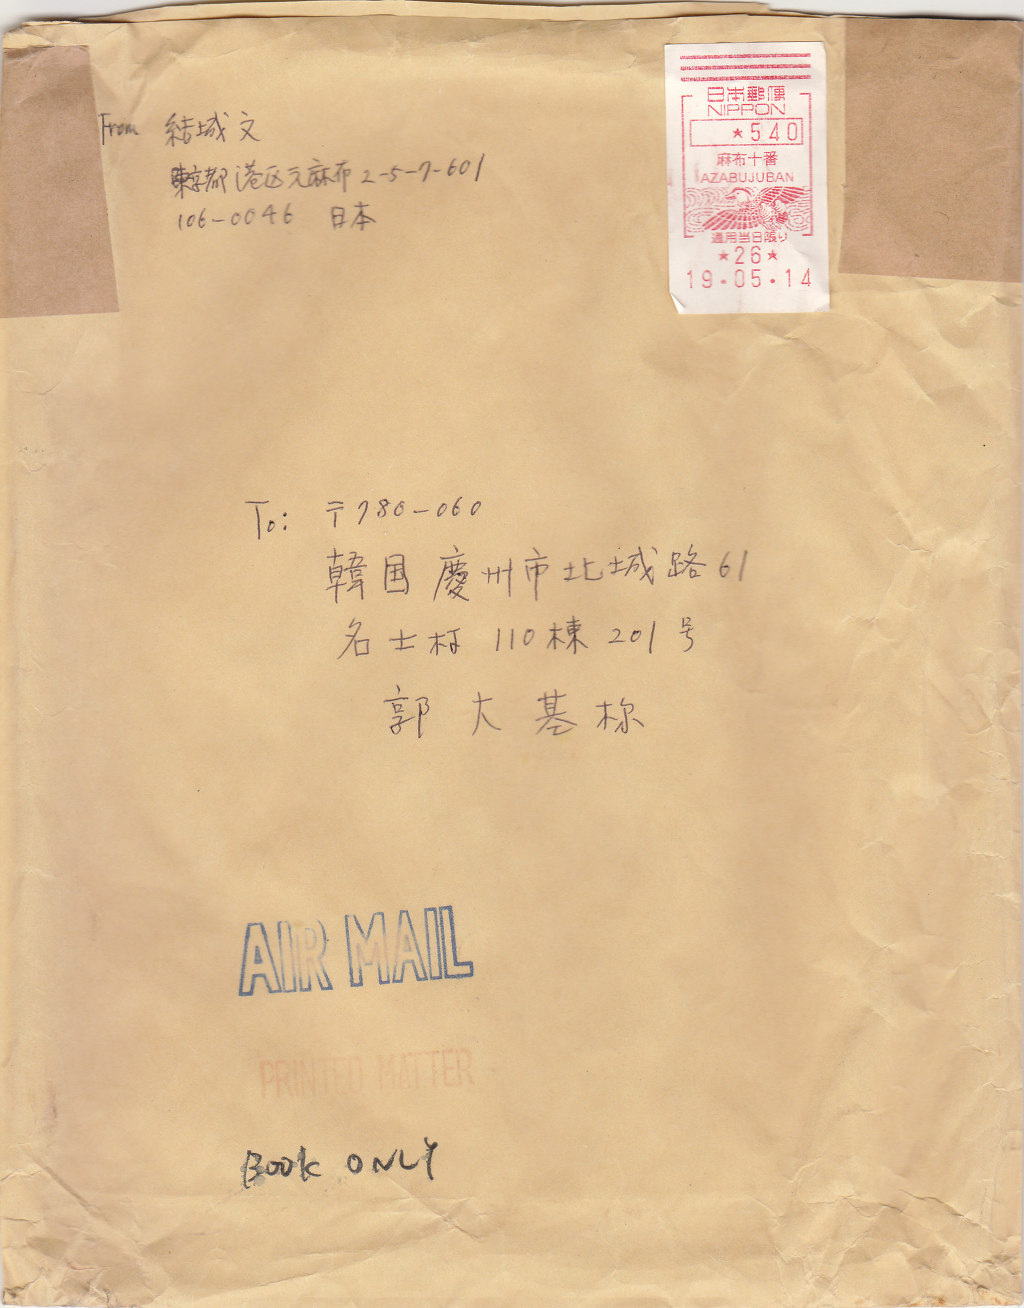 From 結城文
東京都港区元麻布2-5-7-601
106-0046 日本
日本郵便
NIPPON
★540
麻布十番
AZABUJUBAN
適用当日限り
★26★
19.05.14
To: 〒780-060
韓国慶州市北城路61
名士村 110棟 201号
郭大基様
AIR MAIL
PRINTED MATTER
BOOK ONLY